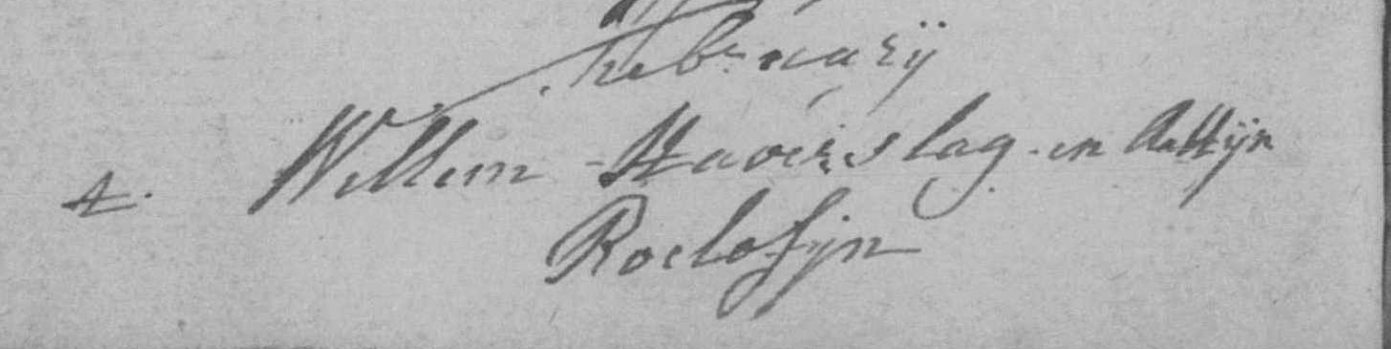 February
4. Willem Haverslag en Aaltjn
Roelofzn